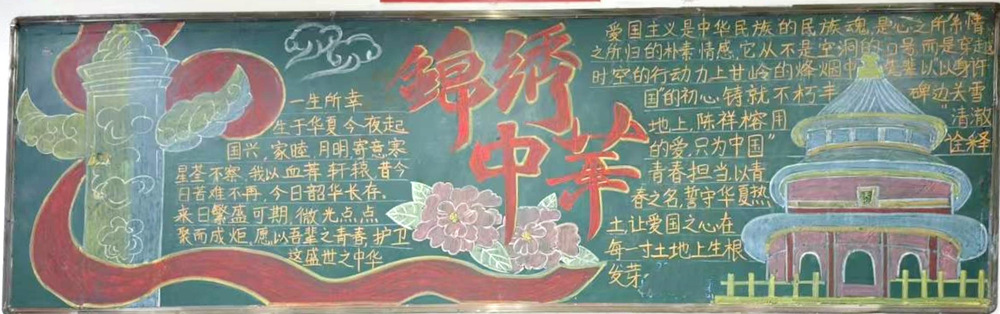 锦绣
中华
一生所幸
生于华夏今夜起
国兴,家睦,月明寄意,寒
星荃不察,我以血荐轩辕,昔今
日苦难不再,今日韶华长存。
来日繁盛可期,微光点点
聚而成炬,愿以吾辈之青春,护卫
这盛世之中华
爱国主义是中华民族的民族魂,是心之所系情
之所归的朴素情感,它从不是空洞的口号,而是穿越
时空的行动力上甘岭的烽烟中先辈以以身许
国"的初心铸就不朽丰碑边关雪
地上,陈祥榕用"清澈
的爱,只为中国"诠释
青春担当,以青
春之名,誓守华夏热
土,让爱国之心在
每一寸土地上生根
发芽。